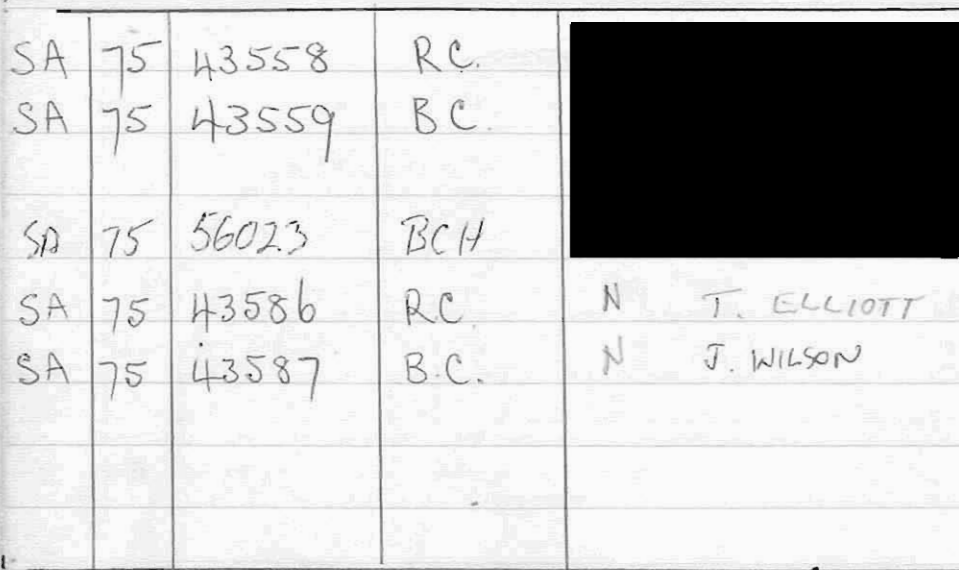 SA 75 43558 RC.
SA 75 43559 BC.
SA 75 56023 BCH
SA 75 43586 RC N T. ELLIOTT
SA 75 43587 B.C. N J. WILSON